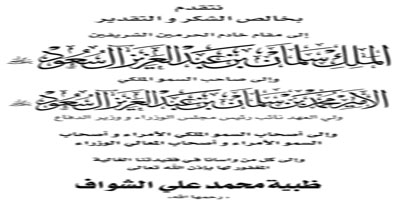 نتقدم
بخالص الشكر و التقدير
إلى مقام خادم الحرمين الشريفين
الملك سلمان بن عبدالعزيز آل سعود
وإلى صاحب السمو الملكي
الأمير محمد بن سلمان بن عبدالعزيز آل سعود
ولي العهد نائب رئيس مجلس الوزراء و وزير الدفاع
وإلى أصحاب السمو الملكي الأمراء و أصحاب
السمو الأمراء و أصحاب المعالي الوزراء
وإلى كل من واسانا في فقيدتنا الغالية
المغفور لها بإذن الله تعالى
ظبية محمد علي الشواف
- رحمها الله -